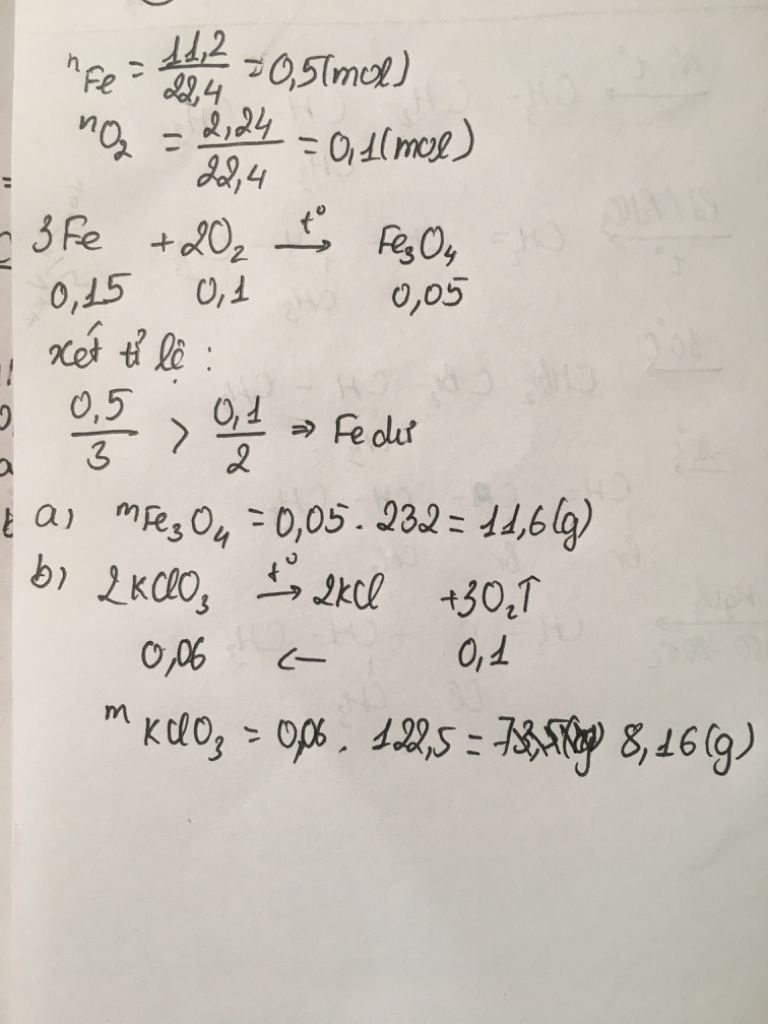 nFe = 11,2/22,4 = 0,5(mol)
nO₂ = 2,24/22,4 = 0,1(mol)
3Fe + 2O₂ t°→ Fe₃O₄
0,15 0,1 0,05
xét tỉ lệ :
0,5/3 > 0,1/2 ⇒ Fe dư
a) mFe₃O₄ = 0,05 . 232 = 11,6(g)
b) 2KClO₃ t°→ 2KCl + 3O₂↑
0,06 ← 0,1
mKClO₃ = 0,06 . 122,5 = 8,16(g)